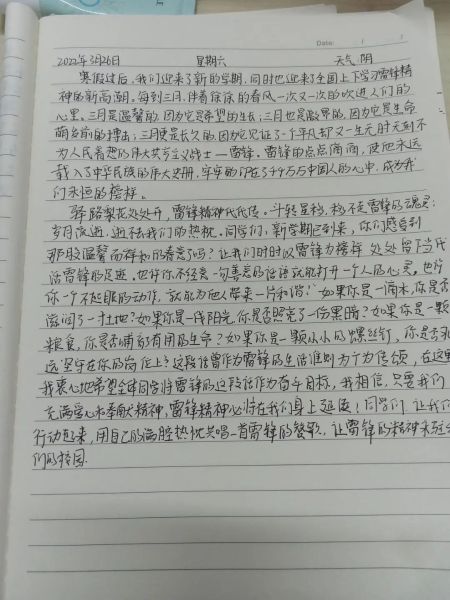 Date:
2022年3月26日 星期六 天气阴
寒假过后,我们迎来了新的学期,同时也迎来了全国上下学习雷锋精
神的新高潮。每到三月,伴着徐徐的春风一次又一次的吹进人们的
心里。三月是温馨的,因为它是希望的生长;三月也是激昂的,因为它是生命
萌发前的搏击;三月更是长久的,因为它见证了一个平凡却又一生无时无刻不
为人民着想的伟大共产主义战士—雷锋。雷锋的点点滴滴,使他永远
载入了中华民族的伟大史册,牢牢的印在了千千万万中国人的心中,成为我
们永恒的榜样。
驿路梨花处处开,雷锋精神代代传。斗转星移,移不走雷锋的魂灵;
岁月流逝,逝不去我们的热忱。同学们,新学期已到来,你们感受到
那股温馨而祥和的春意了吗?让我们时时以雷锋为榜样,处处留下当代
活雷锋的足迹。也许你不经意一句善意的话语就能打开一个人的心灵,也许
你一个不起眼的动作,就能为他人带来一片和谐!如果你是一滴水,你是否
滋润了一寸土地?如果你是一线阳光,你是否照亮了一份黑暗?如果你是一颗
粮食,你是否哺育有用的生命?如果你是一颗小小的螺丝钉,你是否永
远坚守在你的岗位上?这段话曾作为雷锋的生活准则为千古传颂,在这里
我衷心地希望全体同学将雷锋的这段话作为奋斗目标,我相信,只要我们
充满爱心和奉献精神,雷锋精神必将在我们身上延续!同学们,让我们
行动起来,用自己的满腔热忱共唱一首雷锋的赞歌,让雷锋的精神永驻我
们的校园.